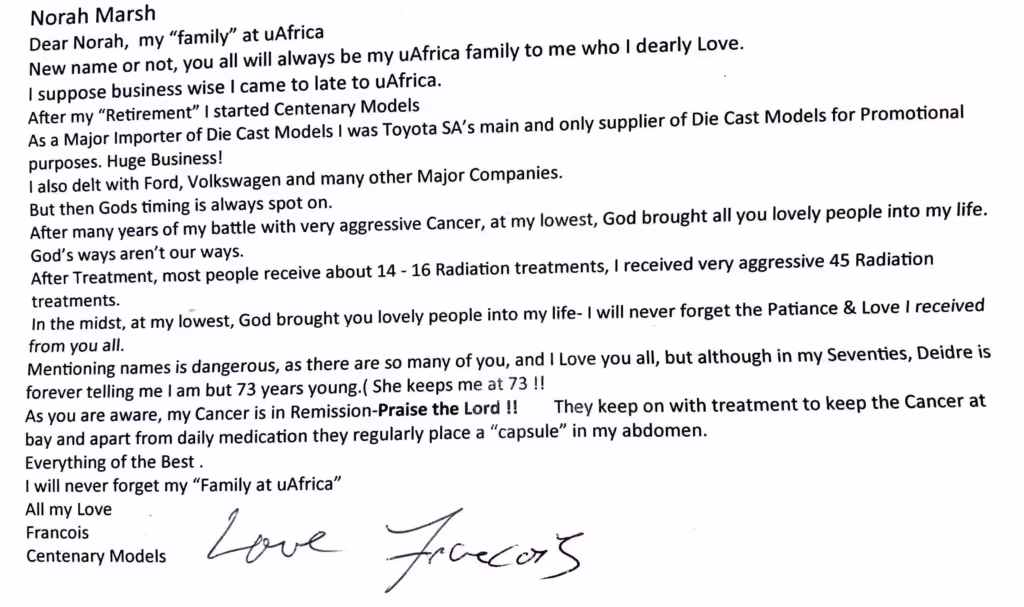 Norah Marsh
Dear Norah, my “family” at uAfrica
New name or not, you all will always be my uAfrica family to me who I dearly Love.
I suppose business wise I came to late to uAfrica.
After my “Retirement” I started Centenary Models
As a Major Importer of Die Cast Models I was Toyota SA’s main and only supplier of Die Cast Models for Promotional
purposes. Huge Business!
I also delt with Ford, Volkswagen and many other Major Companies.
But then Gods timing is always spot on.
After many years of my battle with very aggressive Cancer, at my lowest, God brought all you lovely people into my life.
God’s ways aren’t our ways.
After Treatment, most people receive about 14 - 16 Radiation treatments, I received very aggressive 45 Radiation
treatments.
In the midst, at my lowest, God brought you lovely people into my life- I will never forget the Patiance & Love I received
from you all.
Mentioning names is dangerous, as there are so many of you, and I Love you all, but although in my Seventies, Deidre is
forever telling me I am but 73 years young.( She keeps me at 73 !!
As you are aware, my Cancer is in Remission-Praise the Lord !! They keep on with treatment to keep the Cancer at
bay and apart from daily medication they regularly place a “capsule” in my abdomen.
Everything of the Best .
I will never forget my “Family at uAfrica”
All my Love
Francois
Centenary Models
Love Francois